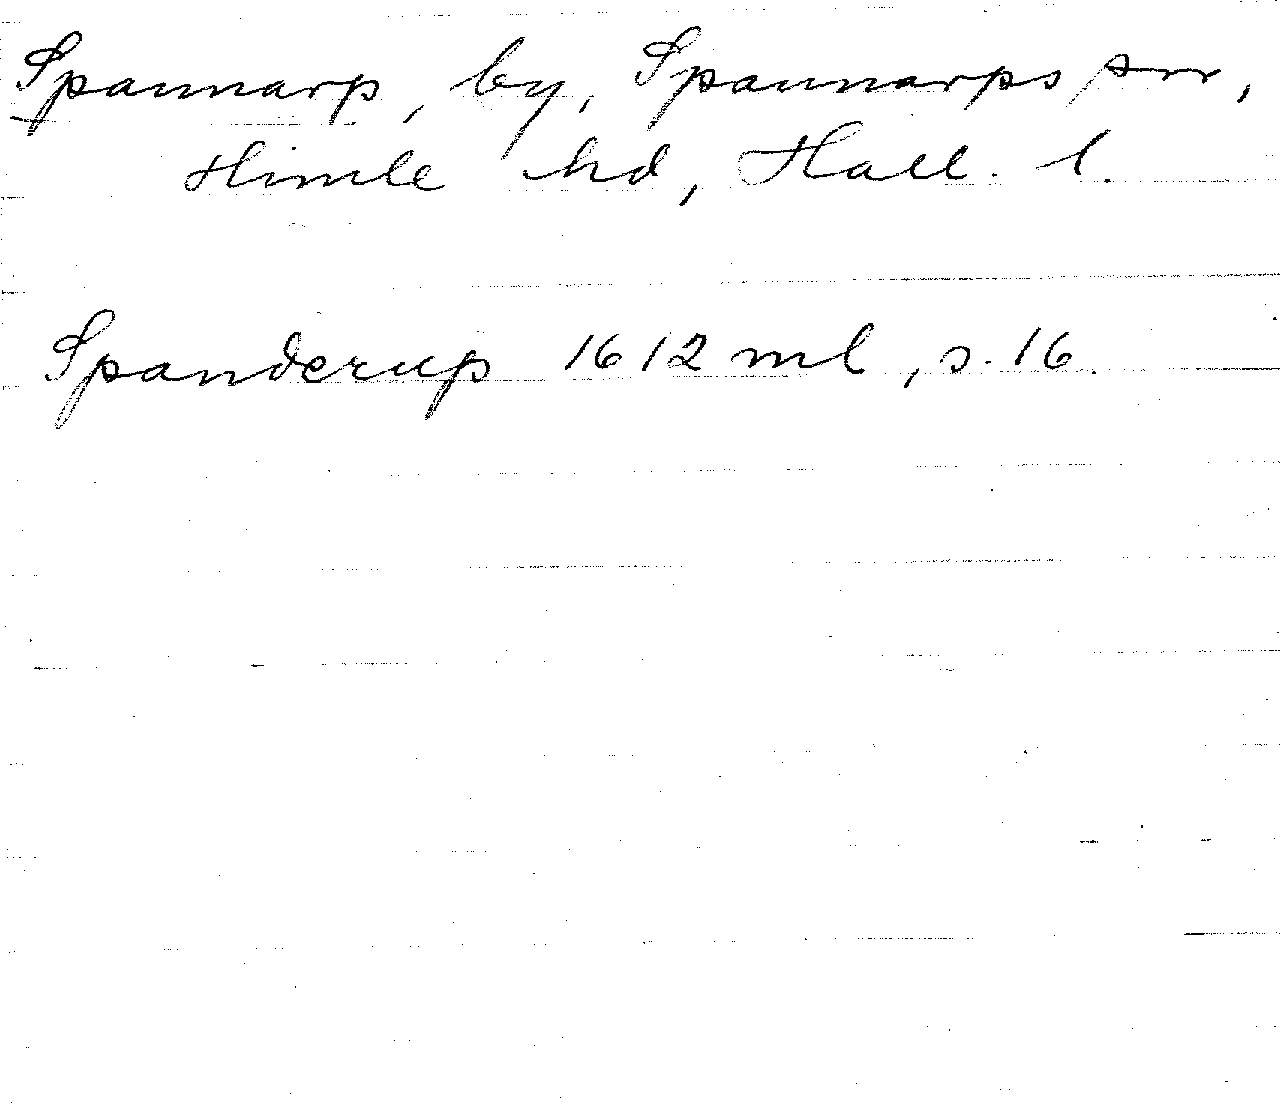 Spannarp, by, Spannarps sn,
Himle hd, Hall. l.
Spanderup 1612 ml, s. 16.